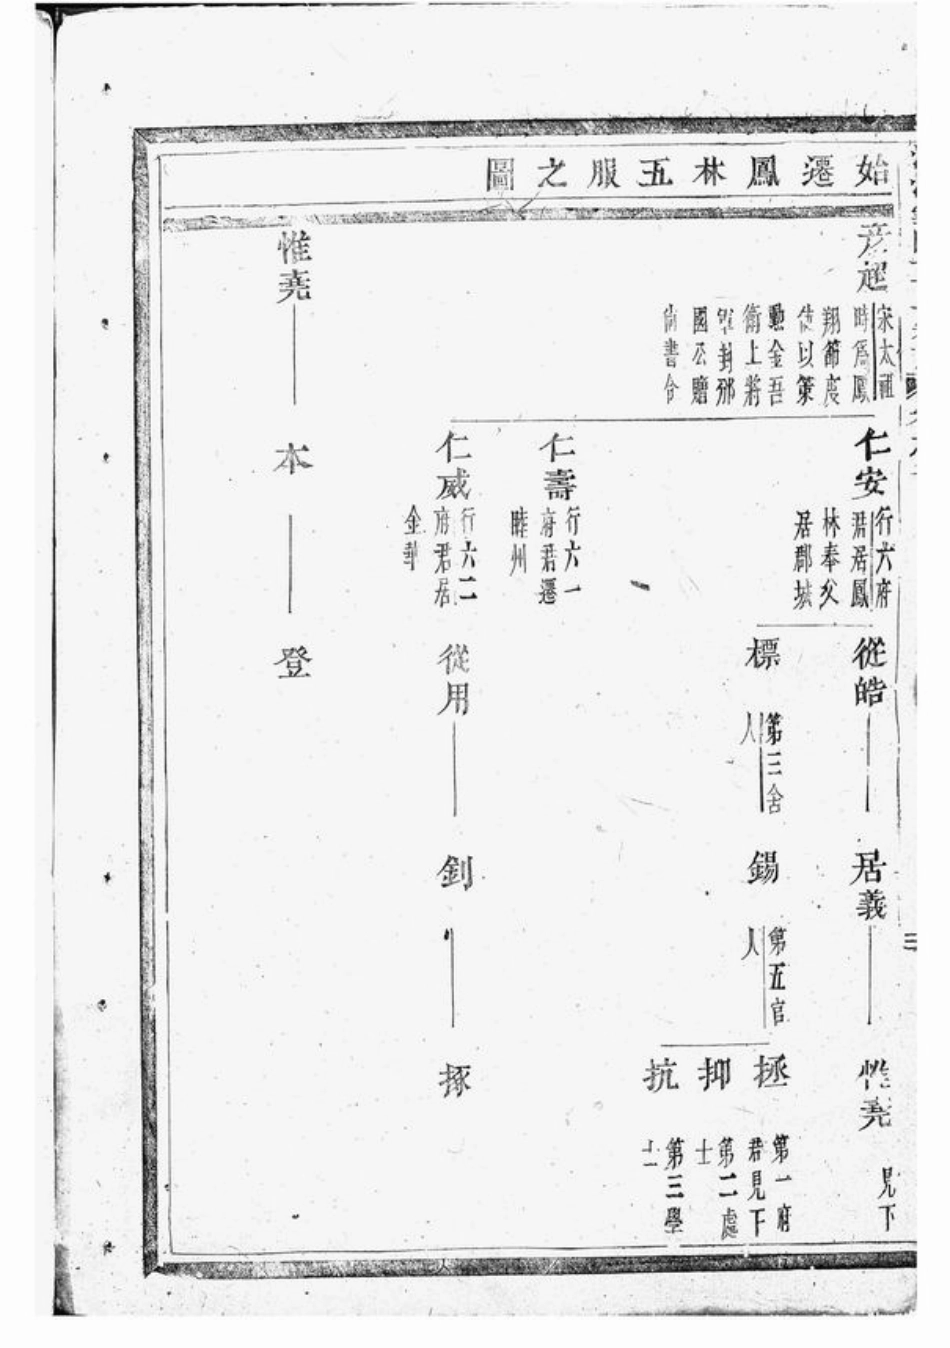 始遷鳳林五服之圖
彦超
宋太祖
時爲鳳
翔節度
使以策
勳金吾
衛上將
軍封邠
國公贈
尚書令
仁安
行六府
君居鳳
林奉父
居郡城
仁壽
行六一
府君遷
睦州
仁威
行六二
府君居
金華
從皓
標
第三舍
人
從用
居義
錫
第五官
人
釗
惟堯
見下
拯
第一府
君見下
抑
第二處
士
抗
第三學
士
㧻
惟堯
本
登